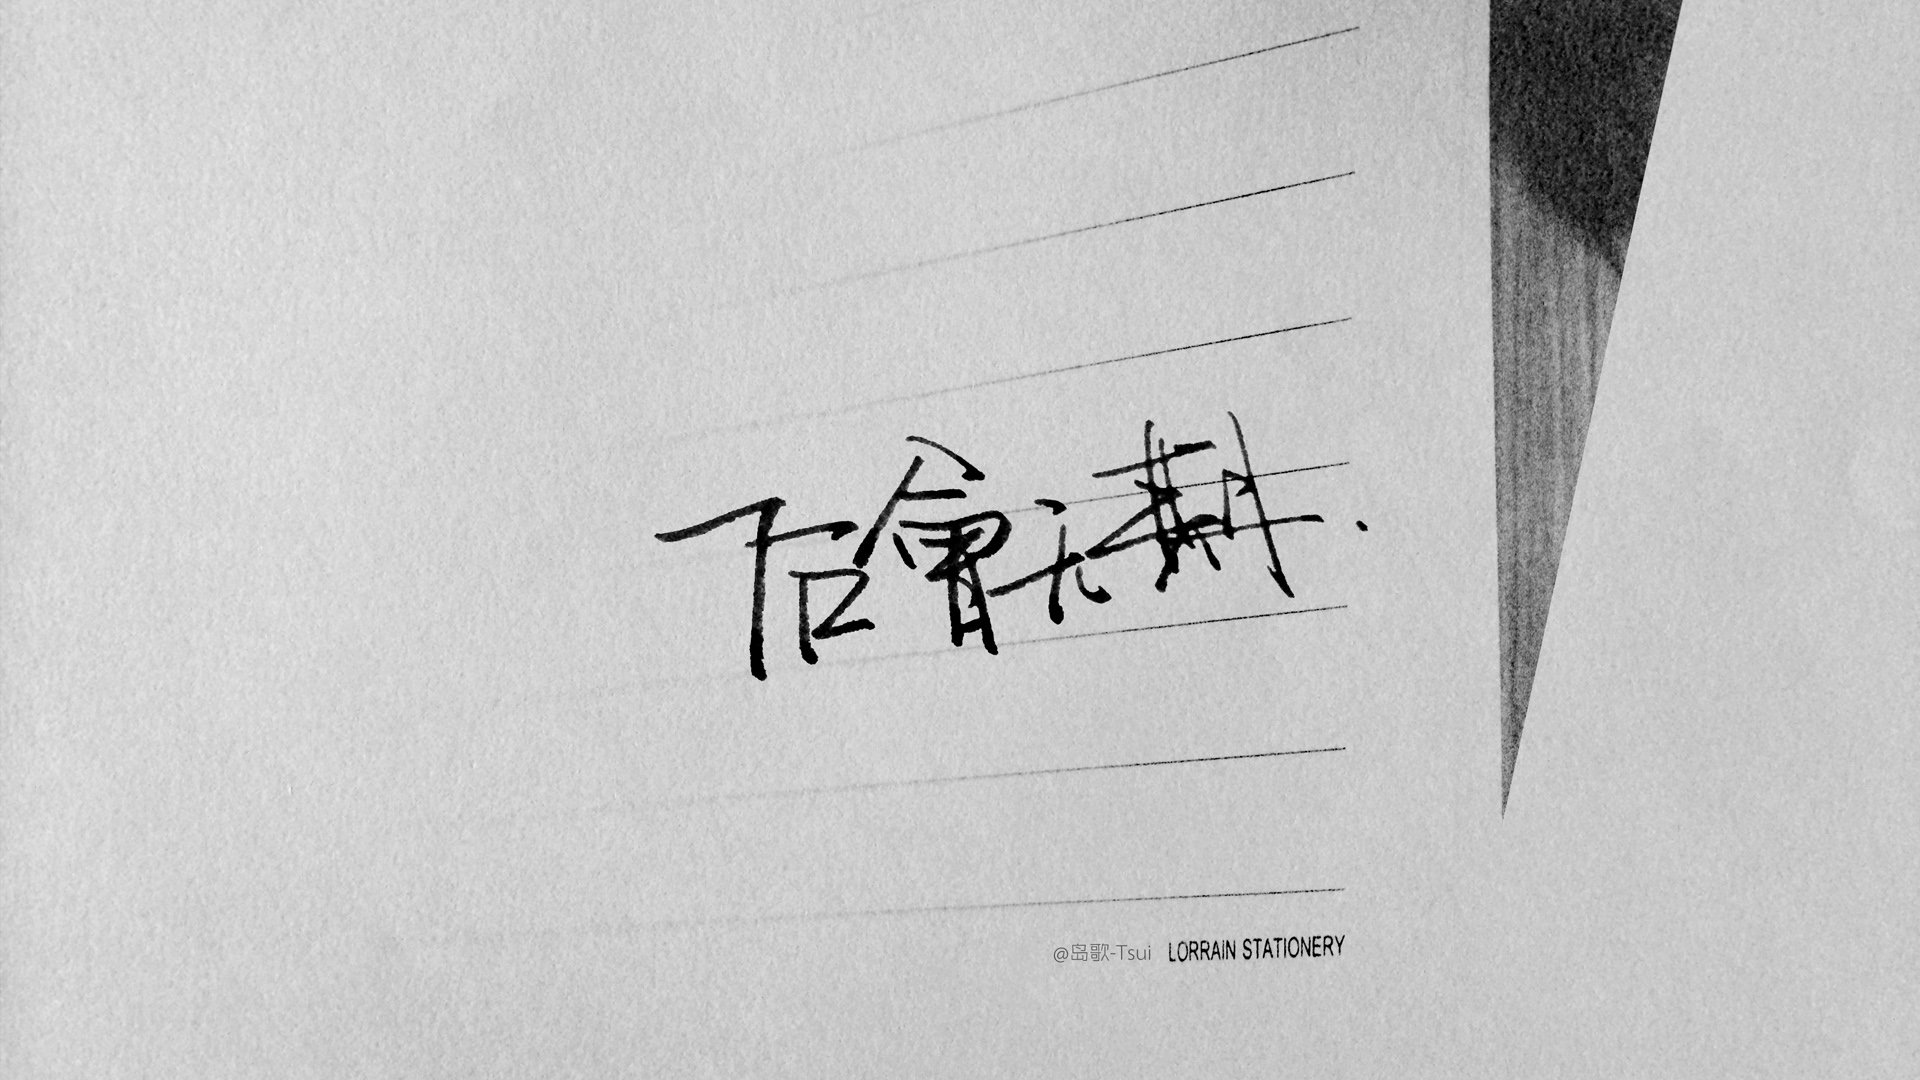 后會无期.
@岛歌-Tsui LORRAIN STATIONERY